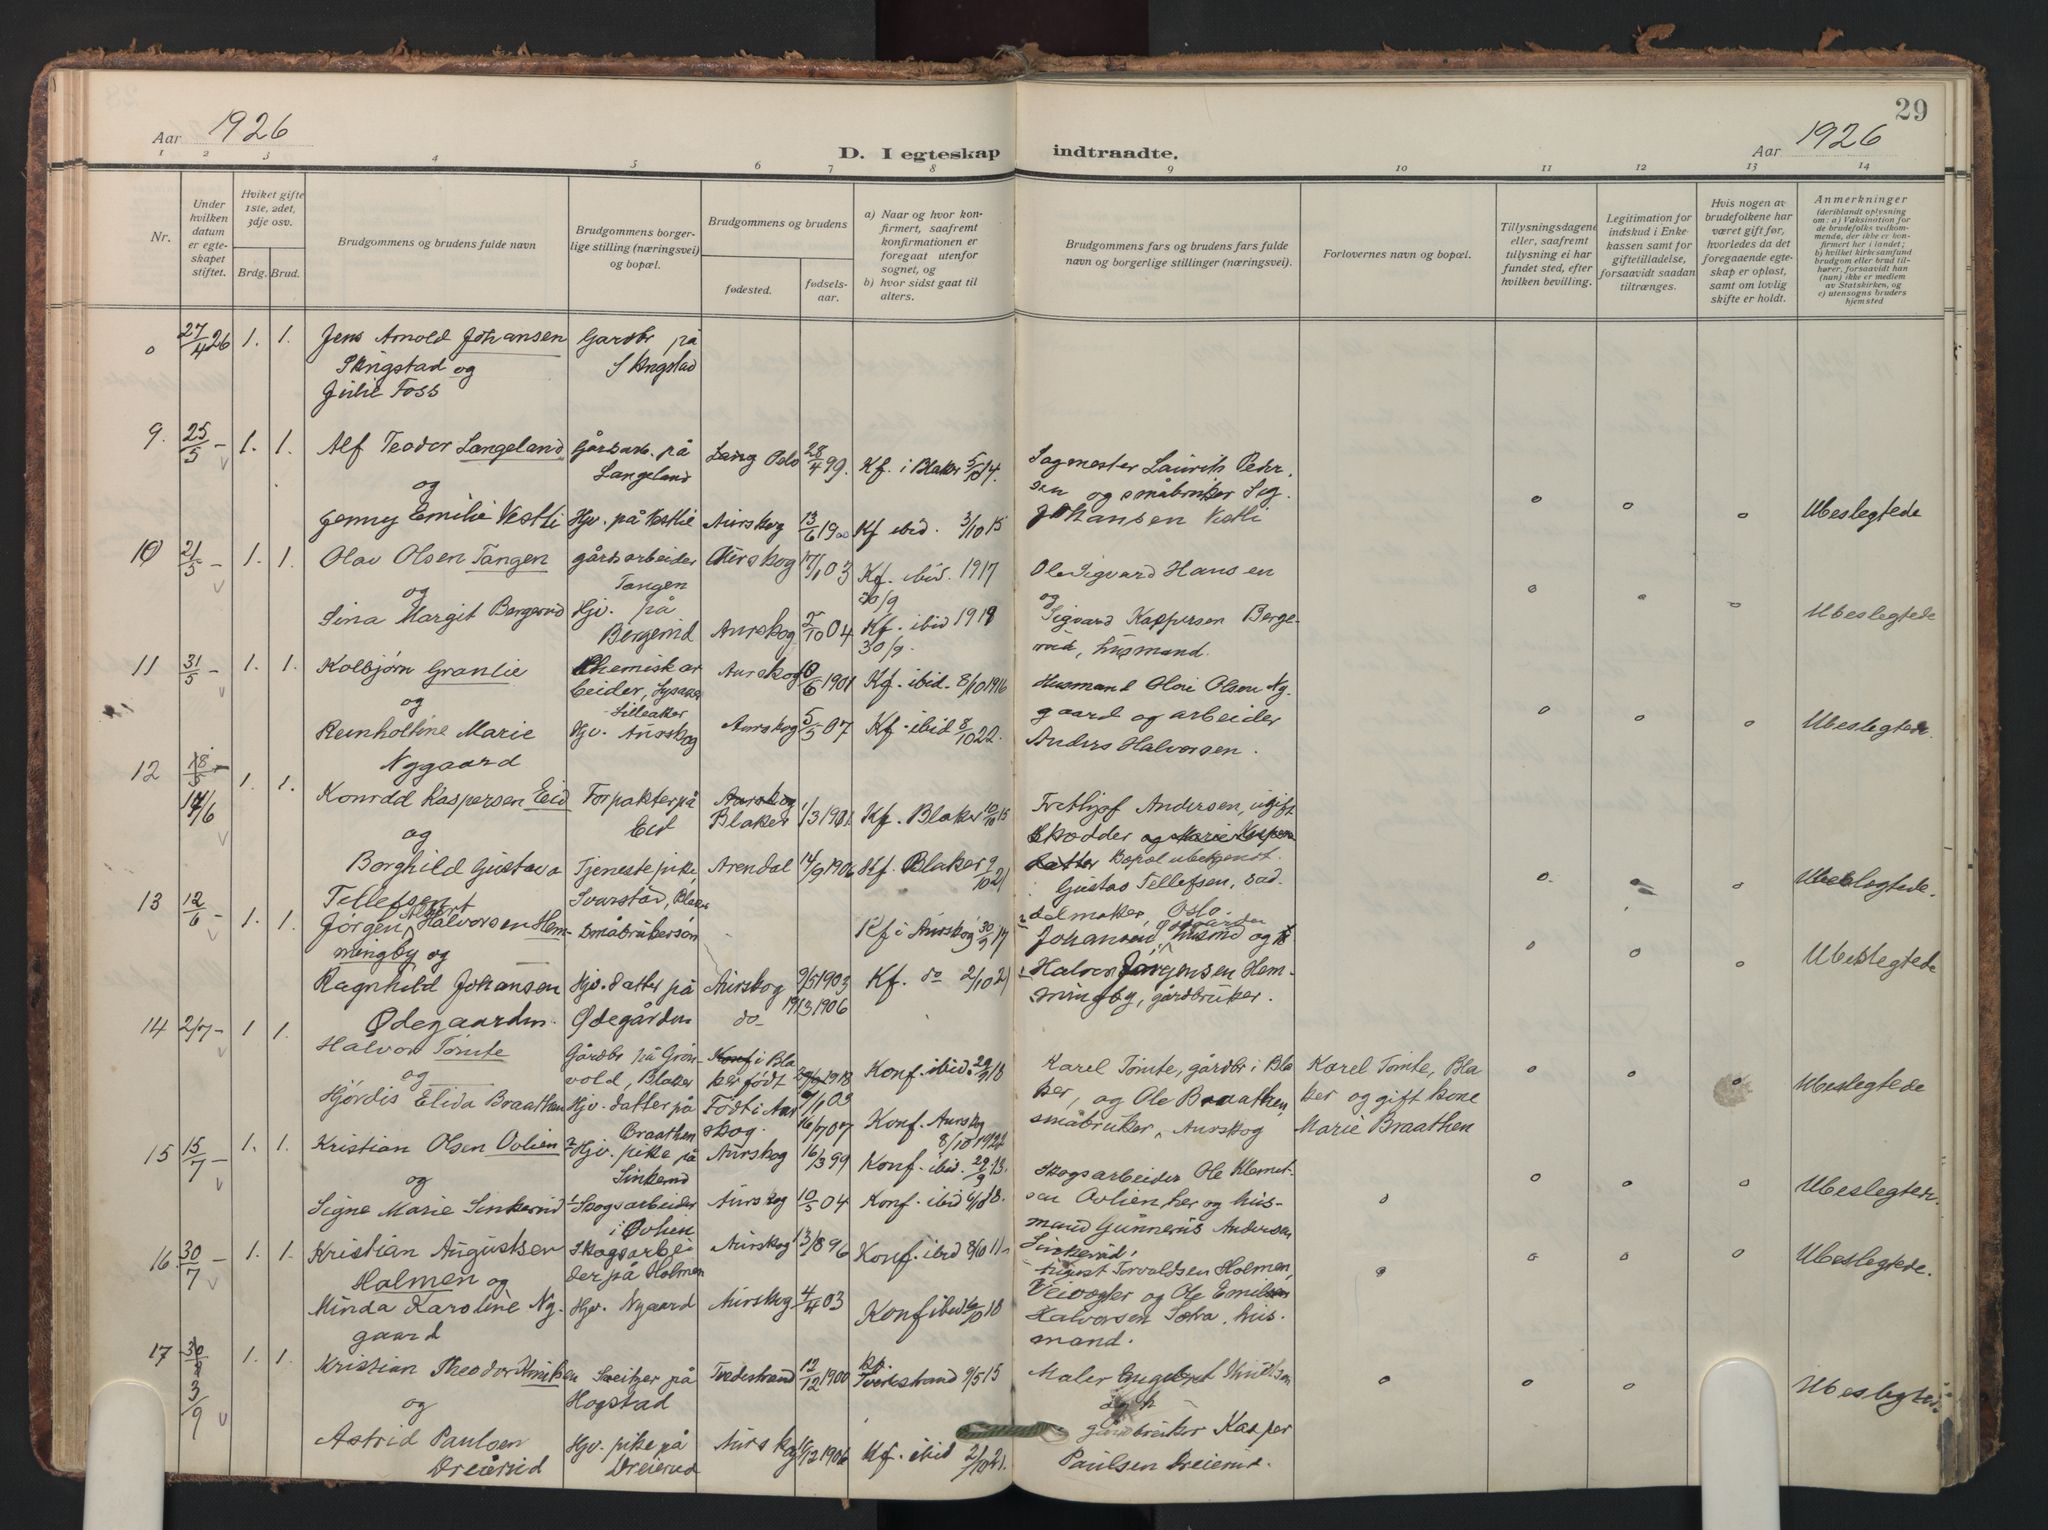 29
Aar 1926
D. I egteskap indtraadte.
Aar 1926
1 2 3 4 5 6 7 8 9 10 11 12 13 14
Nr.
Under hvilken datum er egteskapet stiftet.
Hviket gifte 1ste, 2det, 3dje osv.
Brdg. Brud.
Brudgommens og brudens fulde navn
Brudgommens borgerlige stilling (næringsvei) og bopæl.
Brudgommens og brudens
fødested.
fødselsaar.
a) Naar og hvor konfirmert, saafremt konfirmationen er foregaat utenfor sognet, og
b) hvor sidst gaat til alters.
Brudgommens fars og brudens fars fulde navn og borgerlige stillinger (næringsvei).
Forlovernes navn og bopæl.
Tillysningsdagene eller, saafremt tillysning ei har fundet sted, efter hvilken bevilling.
Legitimation for indskud i Enkekassen samt for giftetilladelse, forsaavidt saadan tiltrænges.
Hvis nogen av brudefolkene har været gift før, hvorledes da det foregaaende egteskap er opløst, samt om lovlig skifte er holdt.
Anmerkninger
(deriblandt oplysning om: a) Vaksination for de brudefolks vedkommende, der ikke er konfirmert her i landet; b) hvilket kirkesamfund brudgom eller brud tilhører, forsaavidt han (hun) ikke er medlem av Statskirken, og c) utensogns bruders hjemsted
o 27/4 26 1. 1. Jens Arnold Johansen Gardbr. på
Skngstad og
Julie Foss
9. 25/5 – 1. 1. Alf Teodor Langeland på 28/4 99. Kf. i Blaker 5/10 14. Sagmester Laurits Peder-
og Langeland sen og småbruker Sig.
Jenny Emilie Vestli Hjv. på Vestlie Aurskog 13/6 1900 Kf ibid. 3/10 15 Johansen Vestli o o o Ubeslegtede
10 21/5 – 1. 1. Olav Olsen Tangen gårdsarbeider Aurskog 17/1 03 Kf. ibid. 1917 Ole Sigvard Hansen
og Tangen 30/9 og o o o Ubeslegtede
Sina Margit Bergerud Hjv. på Bergerud Aurskog 2/10 04 Kf. ibid 1918 30/9. Sigvard Kaspersen Berge-
rud, husmand.
11 31/5 – 1. 1. Kolbjørn Granlie Chemisk ar- Aurskog 10/6 1901 Kf. ibid. 8/10 1916 Husmand Olai Olsen Ny-
og beider, Lysaker gaard og arbeider o o o Ubeslegtede.
Reinholtine Marie Lilleaker Hjv. Aurskog Aurskog 5/5 07 Kf. ibid 8/10 22. Anders Halvorsen.
Nygaard
12 18/5 – 17/6 1. 1. Konrad Kaspersen Eid Forpakter på Aurskog Blaker 1/3 1901. Kf. Blaker 10/10 15 Andersen, ugift
og Eid Skodder og Marie
Borghild Gustava Tjenestepike, Arendal 14/9 1906 Kf. Blaker 9/10 21 datter Bopæl ubekjendt.
Tellefsen Svarstad, Blaker Gustav Tellefsen, sad- o o o Ubeslegtede.
delmaker, Oslo
13 12/6 – 1. 1. Jørgen Albert Halvorsen Hem- Småbrukersøn Kf i Aurskog 30/9 17 Johansen husmd og
mingby og o o o Ubeslegtede
Ragnhild Johansen Hjv. datter på Aurskog 9/5 1903 Kf. do 2/10 21 Halvor Jørgensen Hem-
Ødegaarden. Ødegården do 19/3 1906 mingby, gårdbruker.
14 2/7 – 1 1. Halvor Tømte Gårdbr på Grøn- Konf i Bla- Konf. ibid. 29/9 18 Karel Tømte, gårdbr i Bla- Karel Tømte, Bla-
og vold, Blaker ker født 9/1 03 ker, og Ole Braathen, ker og gift kone o o o Ubeslegtede
Hjørdis Elida Braathen Hjv. datter på Braathen Født i Aurskog. 16/7 07 Konf. Aurskog 8/10 1922 småbruker, Aurskog Marie Braathen
15 15/7 – 1. 1. Kristian Olsen Ovlien 2 Hjv. pike på Aurskog 16/3 99 Konf. ibid. 29/9 13. Skogsarbeider Ole Klemet-
og Sinkerud sen Ovlien, her og hus- o o o o Ubeslegtede.
Signe Marie Sinkerud 1 Skogsarbeider i Ovlien Aurskog 10/5 04 Konf. ibid 6/10 18. mand Gunnerus Andersen
Sinkerud.
16. 30/7 1. 1. Kristian Augustsen Skogsarbei- Aurskog 13/8 96 Konf. ibid 8/10 11 August Torvaldsen Holmen,
Holmen og der på Holmen Veivogter og Ole Emilsen o o o o Ubeslegtede.
Minda Karoline Ny- Hjv. Nygaard Aurskog 4/4 03 Konf ibid 6/10 18 Halvorsen Sætra, hus-
gaard mand.
17 3/9 1. 1. Kristian Theodor Knutsen Sveitser på Tvedestrand 12/12 1900 Kf. Tvedestrand 9/5 15 Maler Engebret Knutsen
og Hogstad o o o Ubeslegtede
Astrid Paulsen Hjv. pike på Aurskog 16/12 1906 Kf. ibid 2/10 21. gårdbruker Kasper
Dreierud Dreierud Paulsen Dreierud.